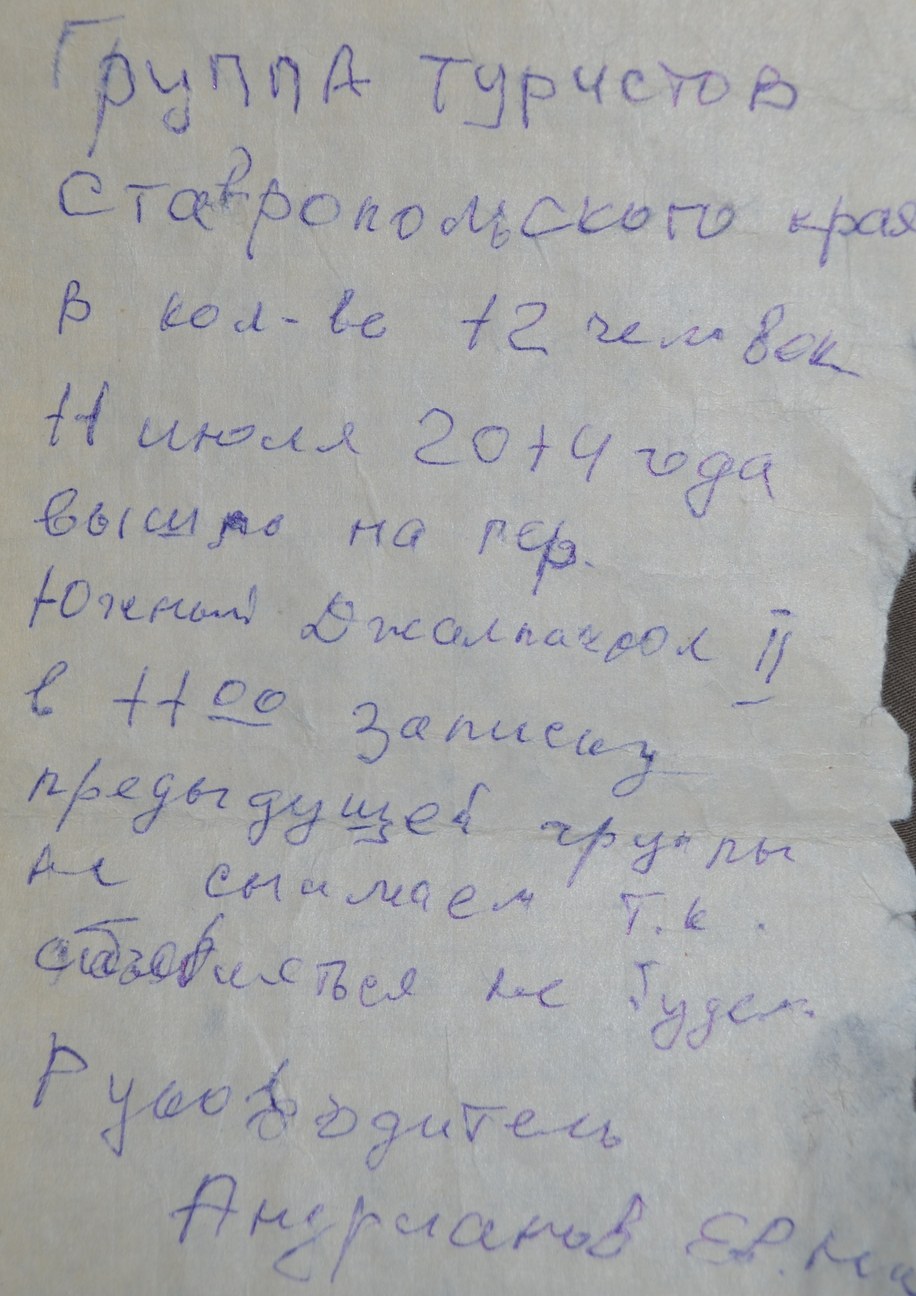 Группа туристов
Ставропольского края
в кол-ве 12 человек
11 июля 2014 года
вышло на пер.
Южный Джалпаккол II
в 11 00 записку
предыдущей группы
не снимаем т.к.
не будем
Руководитель
Андрианов